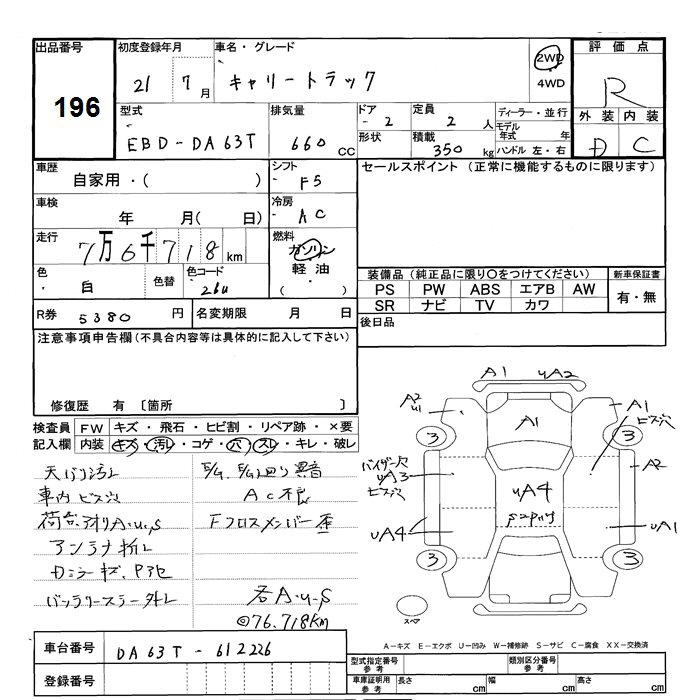 出品番号
196
初度登録年月
21 7月
車名・グレード
キャリートラック
2WD
4WD
評価点
R
外装 内装
D C
型式
EBD-DA63T
排気量
660 cc
ドア
- 2
定員
2 人
形状
積載
350 kg
ディーラー・並行
モデル年式 年
ハンドル 左・右
車歴
自家用・( )
シフト
F5
セールスポイント (正常に機能するものに限ります)
車検
年 月( 日)
冷房
AC
走行
7万6千718km
燃料
ガソリン
軽油
( )
色
白
色替
色コード
26U
装備品(純正品に限り○をつけてください)
PS PW ABS エアB AW
SR ナビ TV カワ
新車保証書
有・無
R券 5380 円
名変期限 月 日
後日品
注意事項申告欄(不具合内容等は具体的に記入して下さい)
修復歴 有 〔箇所 〕
検査員記入欄
FW キズ・飛石・ヒビ割・リペア跡・×要
内装 キズ・汚レ・コゲ・穴・スレ・キレ・破レ
天バリ汚レ
車内ビス穴
荷台、アオリA・u・S
アンテナ折レ
Dミラーキズ、P欠
バッテリーステー外レ
E/G、E/G廻り異音
AC不良
Fクロスメンバー歪
各A・u・S
◎76,718km
A1 uA2
A2
u1
A1
A1
ビス穴
3
3
3
3
バイザー穴
uA3
ビス穴
A2
uA4
uA4
uA1
スペア
A-キズ E-エクボ U-凹み W-補修跡 S-サビ C-腐食 XX-交換済
車台番号
DA63T-612226
登録番号
型式指定番号
参考
類別区分番号
参考
車庫証明用
参考
長さ cm
幅 cm
高さ cm